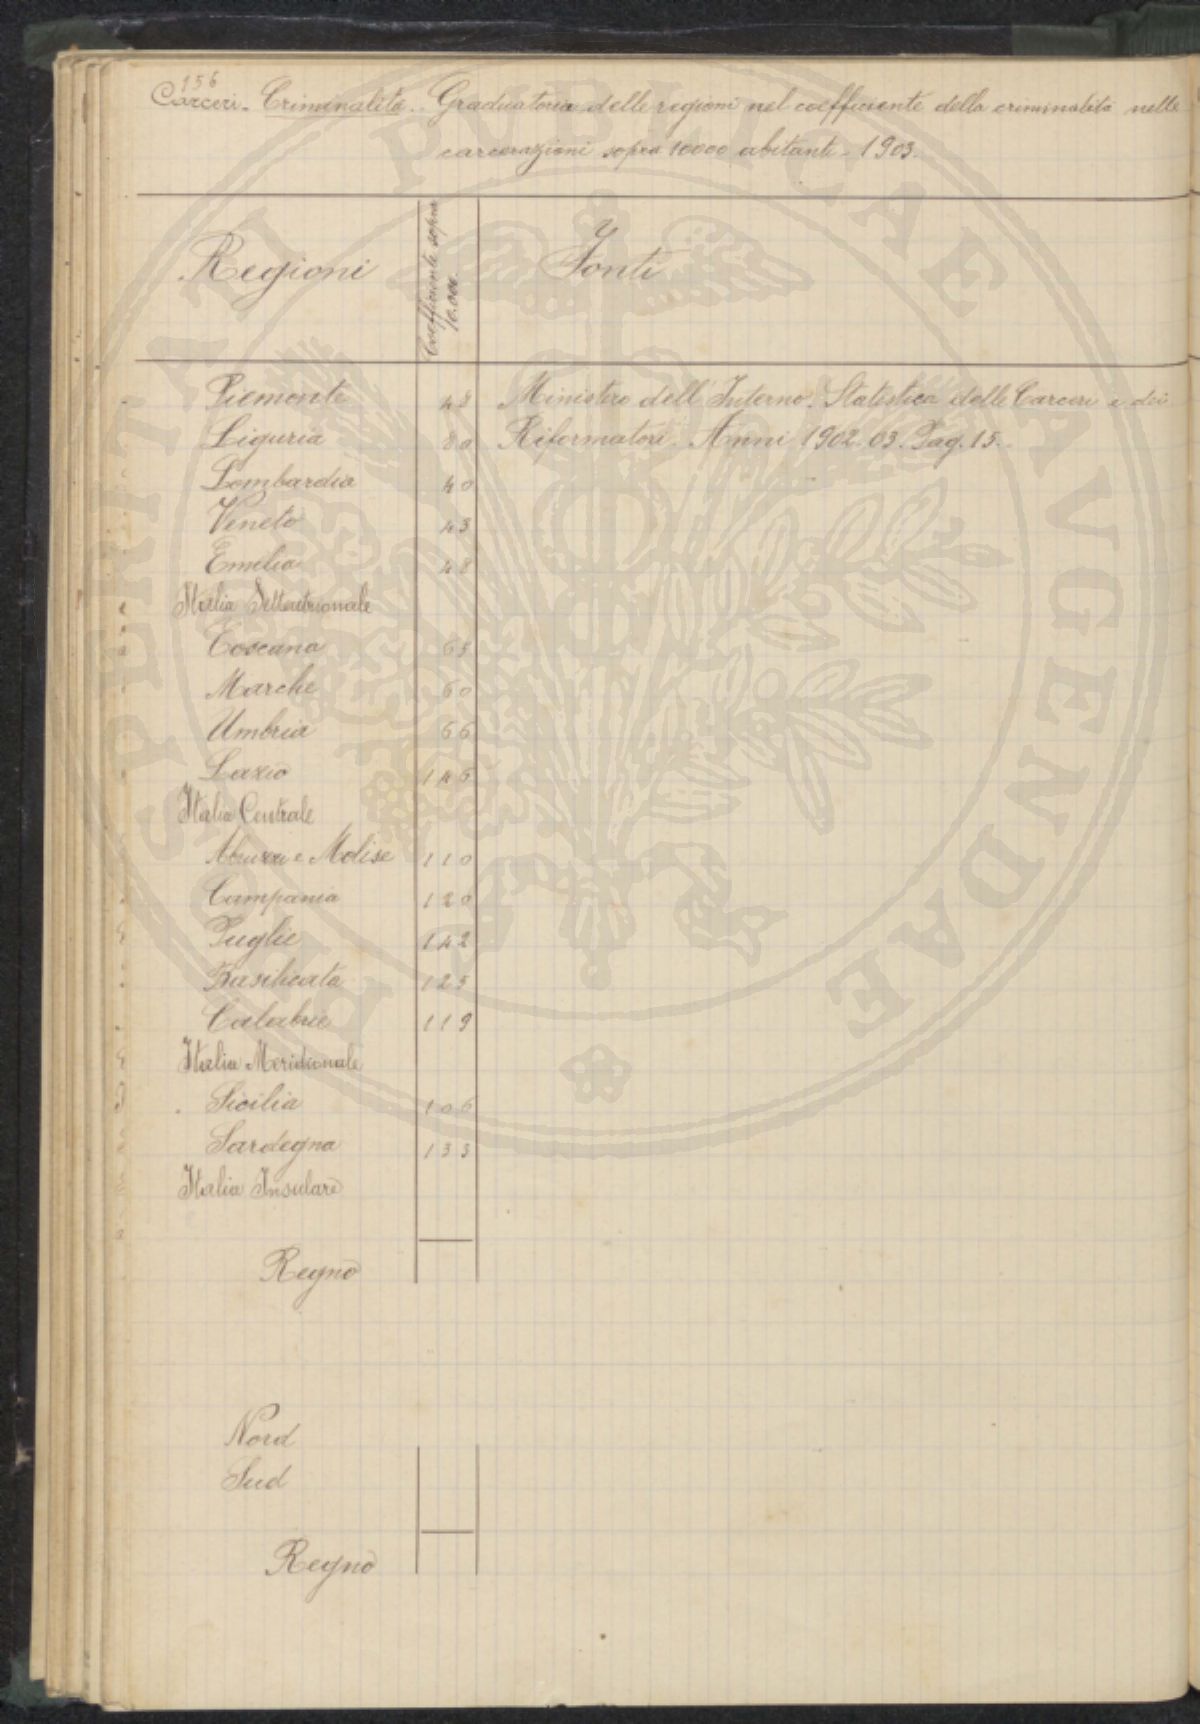 156
Carceri - Criminalità - Graduatoria delle regioni nel coefficiente della criminalità nelle
carcerazioni sopra 10000 abitanti - 1903.
Regioni
Coefficiente sopra
10.000
Fonti
Piemonte 48 Ministero dell'Interno. Statistica delle Carceri e dei
Liguria 80 Riformatori. Anni 1902-03. Pag. 15.
Lombardia 40
Veneto 43
Emilia 48
Italia Settentrionale
Toscana 65
Marche 60
Umbria 66
Lazio 146
Italia Centrale
Abruzzi e Molise 110
Campania 120
Puglie 142
Basilicata 125
Calabrie 119
Italia Meridionale
Sicilia 106
Sardegna 133
Italia Insulare
Regno
Nord
Sud
Regno
PROSPERITATI PUBLICAE AVGENDAE